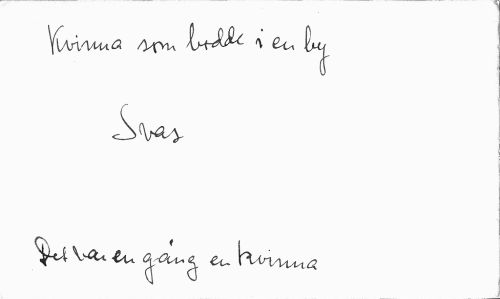 Kvinna som bodde i en by
Svas
Det var en gång en kvinna